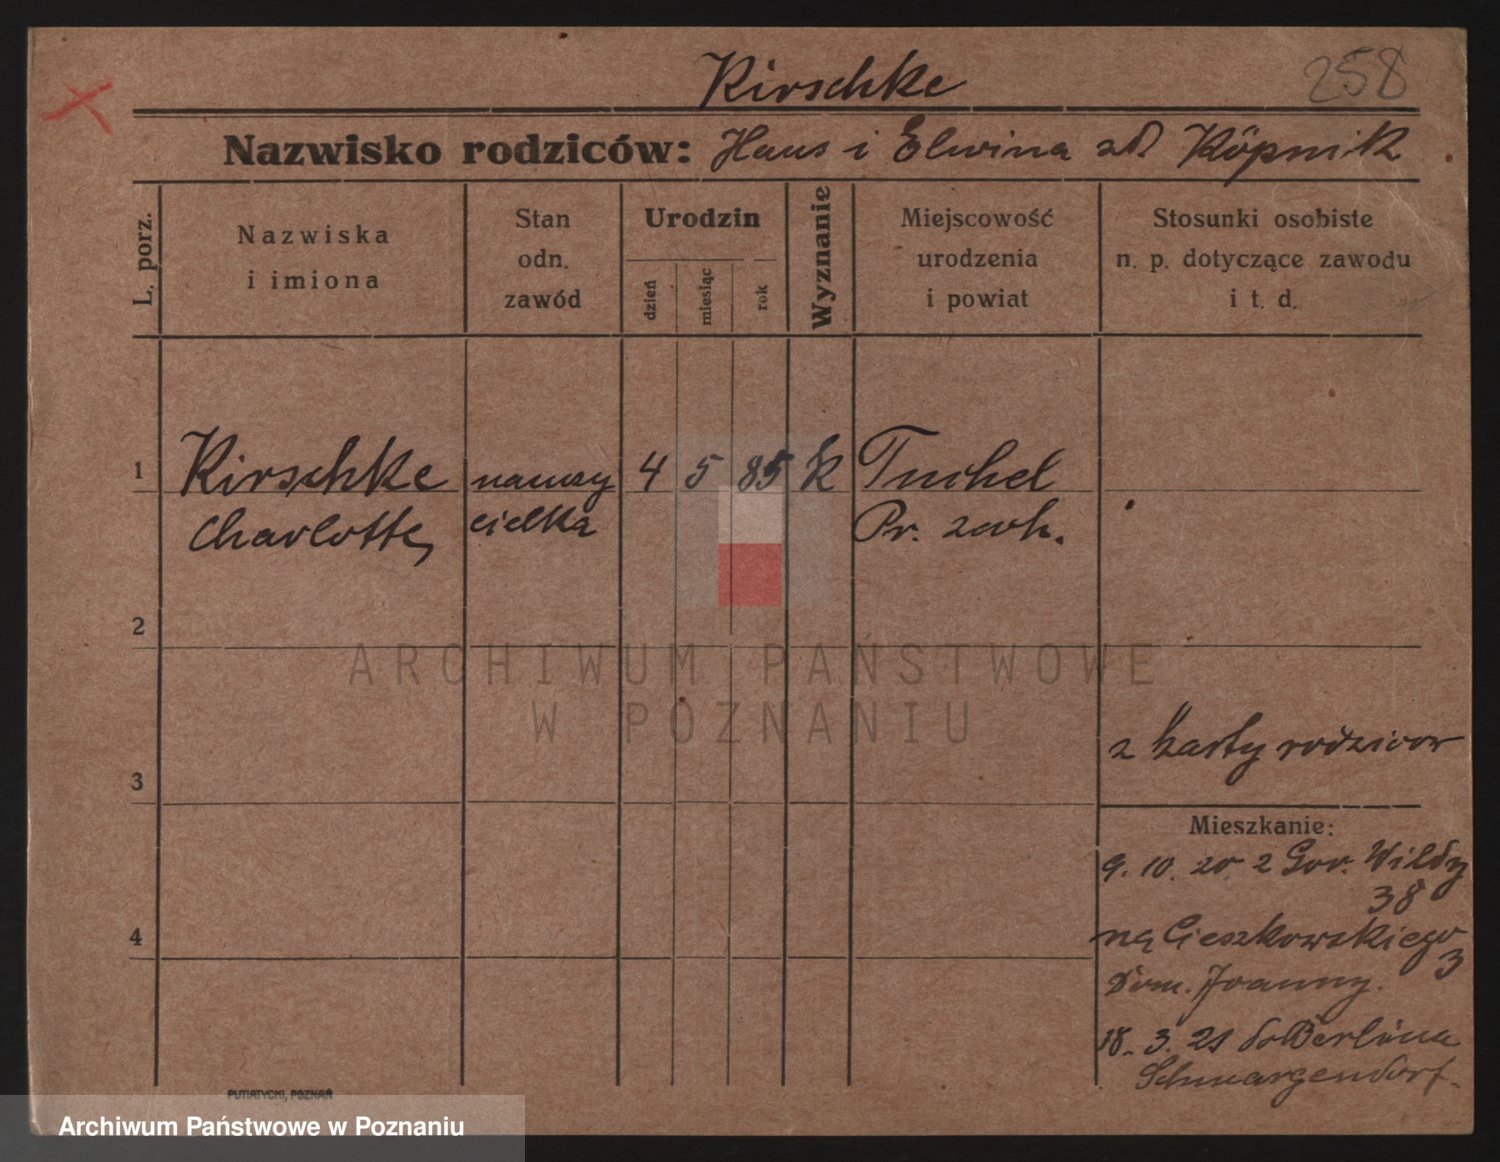 Kirschke
258
Nazwisko rodziców: Hans i Elwina zd. Köpnik
L. porz.
Nazwiska
i imiona
Stan
odn.
zawód
Urodzin
dzień
miesiąc
rok
Wyznanie
Miejscowość
urodzenia
i powiat
Stosunki osobiste
n. p. dotyczące zawodu
i t. d.
1
Kirschke
Charlotte,
nauczy
cielka
4 5 85 k
Tuchel
Pr. zach.
2
3
4
z karty rodziców
Mieszkanie:
9. 10. 20 z Gor. Wildy
38
na Cieszkowskiego
3
Dom. Joanny.
18. 3. 21 do Berlina
Schmargendorf.
PUTIATYCKI, POZNAŃ
ARCHIWUM PAŃSTWOWE
W POZNANIU
Archiwum Państwowe w Poznaniu